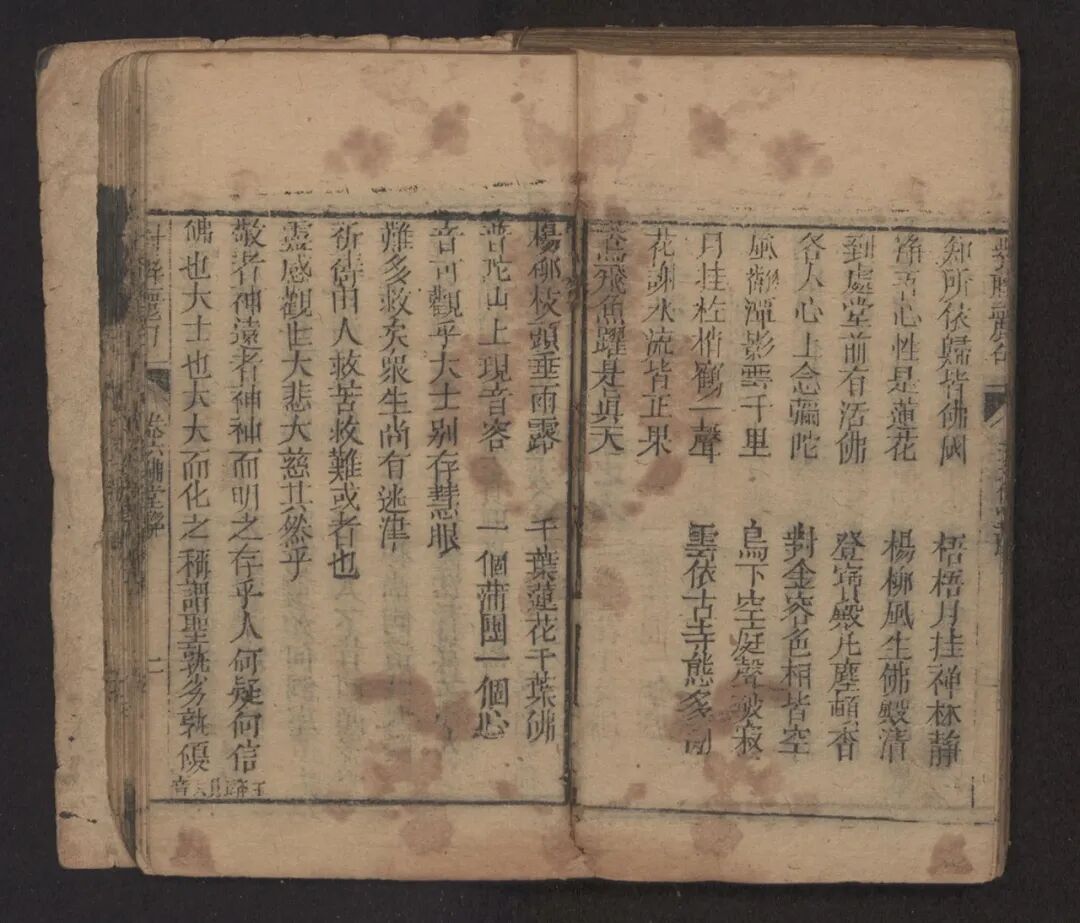 知所依歸皆佛國 梧梧月挂禅林靜
淨吾心性是蓮花 楊柳風生佛殿清
到處堂前有活佛 登寳殿凡塵頓杳
各人心上念彌陀 對金容色相皆空
風衛潭影雲千里 鳥下空庭聲破寂
月挂松梢鶴一聲 雲依古寺態多
花謝水流皆正果
鳶飛魚躍是眞天
楊柳枝頭垂雨露 千葉蓮花千葉佛
普陀山上現音容 一個蒲團一個心
音可觀乎大士別存慧眼
難多救矣衆生尚有迷津
祈禱由人救苦救難或者也
靈感觀世大悲大慈其然乎
敬者神遠者神神而明之存乎人何疑何信
佛也大士也大大而化之稱謂聖孰劣孰優
卷六佛堂聯 二